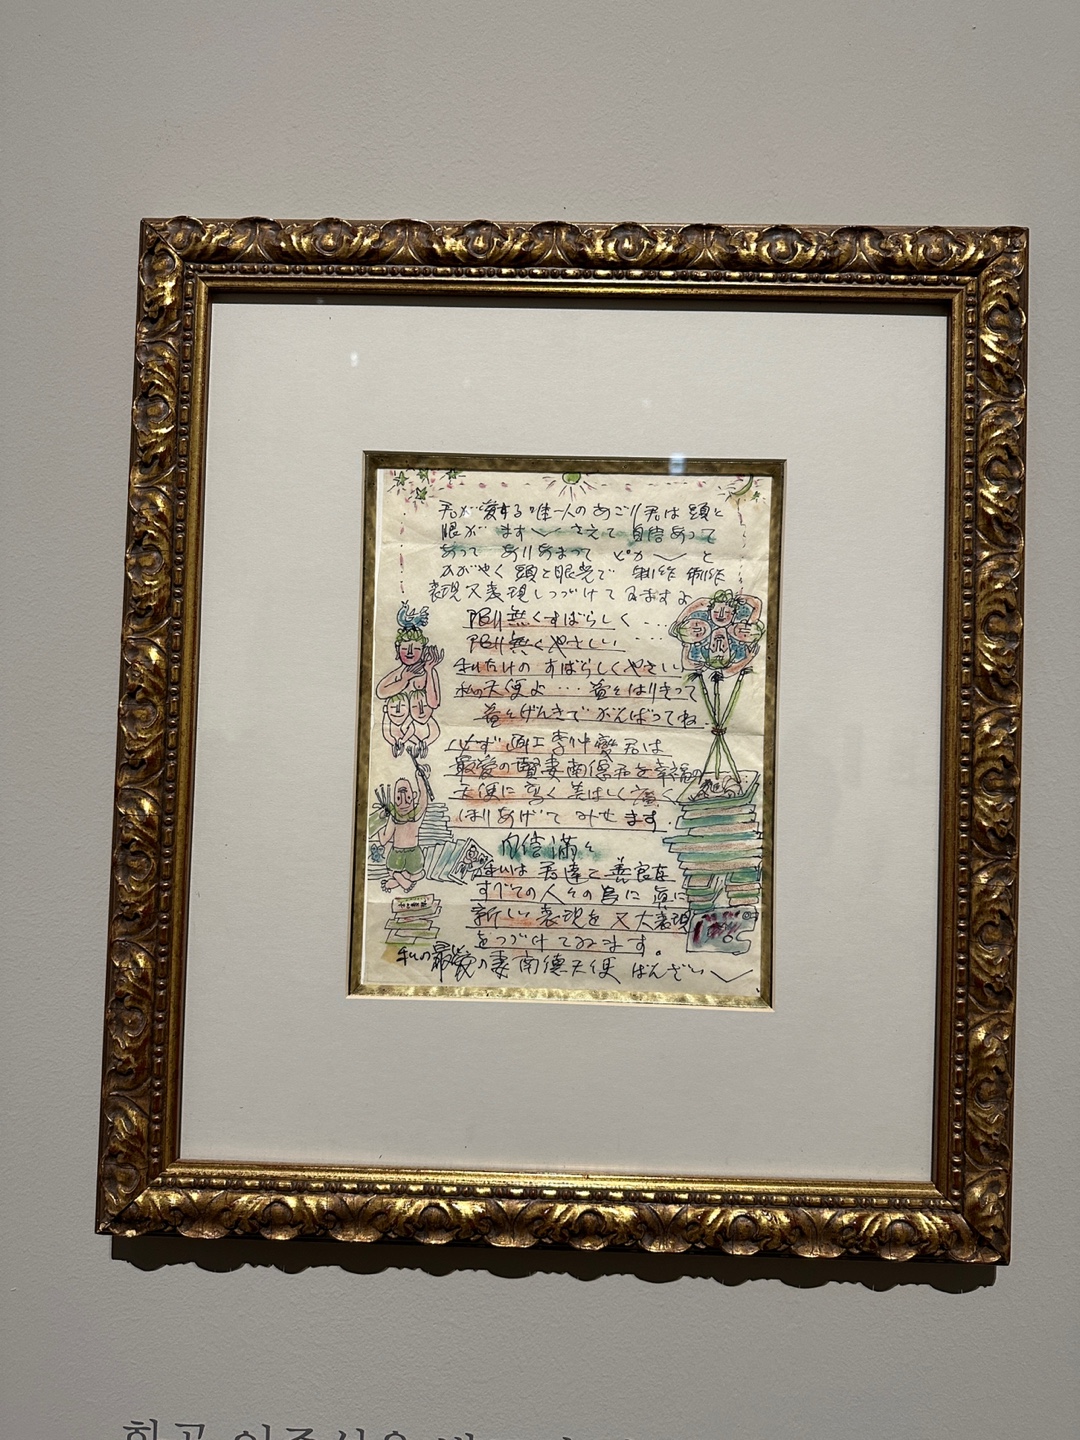 君が愛する唯一人のあごり君は頭と
眼が ます〱 さえて 自信あって
あって ありあまって ピカ〱 と
かがやく 頭と眼光で 制作 制作
表現又表現しつづけてゐますよ
限り無くすばらしく・・・
限り無くやさしい ・・・
私だけの すばらしくやさしい
私の天使よ・・・益々はりきって
益々げんきで がんばってね.
必ず 画工李仲燮君は
最愛の賢妻南德君を幸福の
天使に 高く 美はしく 広く
ほりあげて みせ ます.
自信満々
私は 君達と 善良な
すべての人々の為に 真に
新しい表現を 又 大表現
をつづけてゐます。
私の最愛の妻南德天使 ばんざい